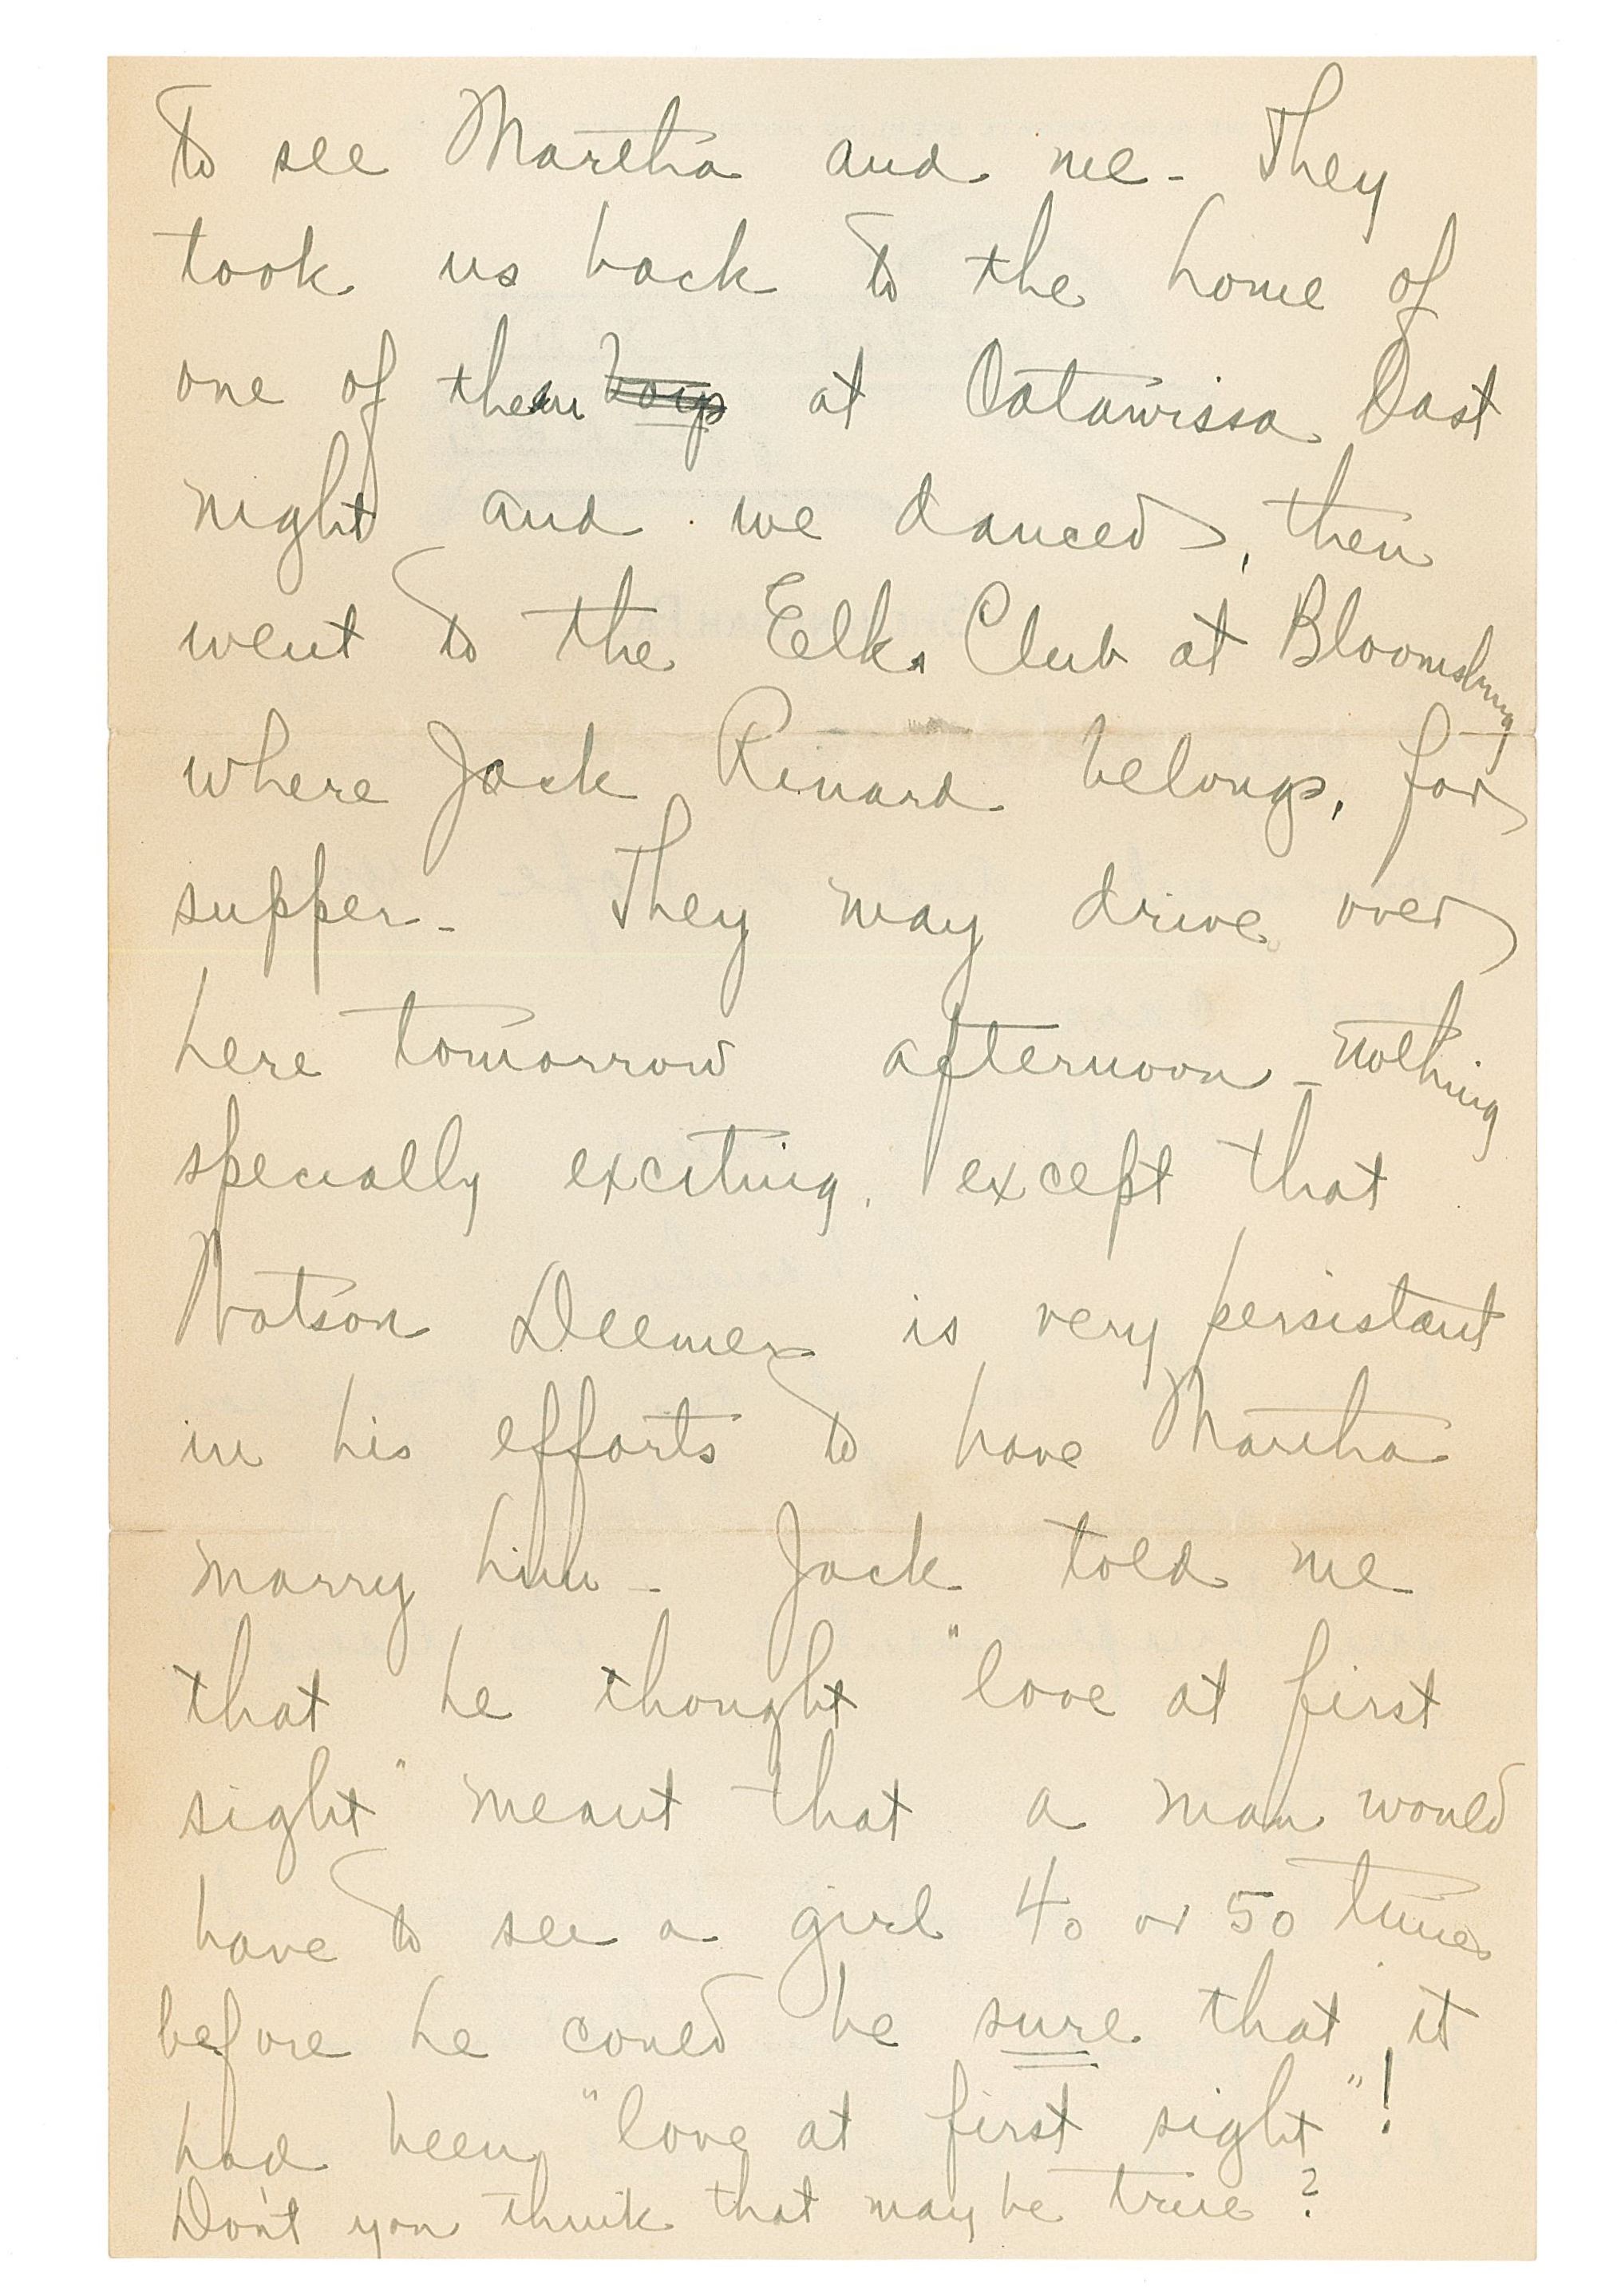 to see Martha and me - They
took us back to the home of
one of them boys at Catawissa last
night and we danced, then
went to the Elks Club at Bloomsburg
where Jack Rinard belongs, for
supper - They may drive over
here tomorrow afternoon - nothing
specially exciting, except that
Watson Deemer is very persistant
in his efforts to have Martha
marry him - Jack told me
that he thought "love at first
sight" meant that a man would
have to see a girl 40 or 50 times
before he could be sure that it
had been "love at first sight"!
Don't you think that may be true?